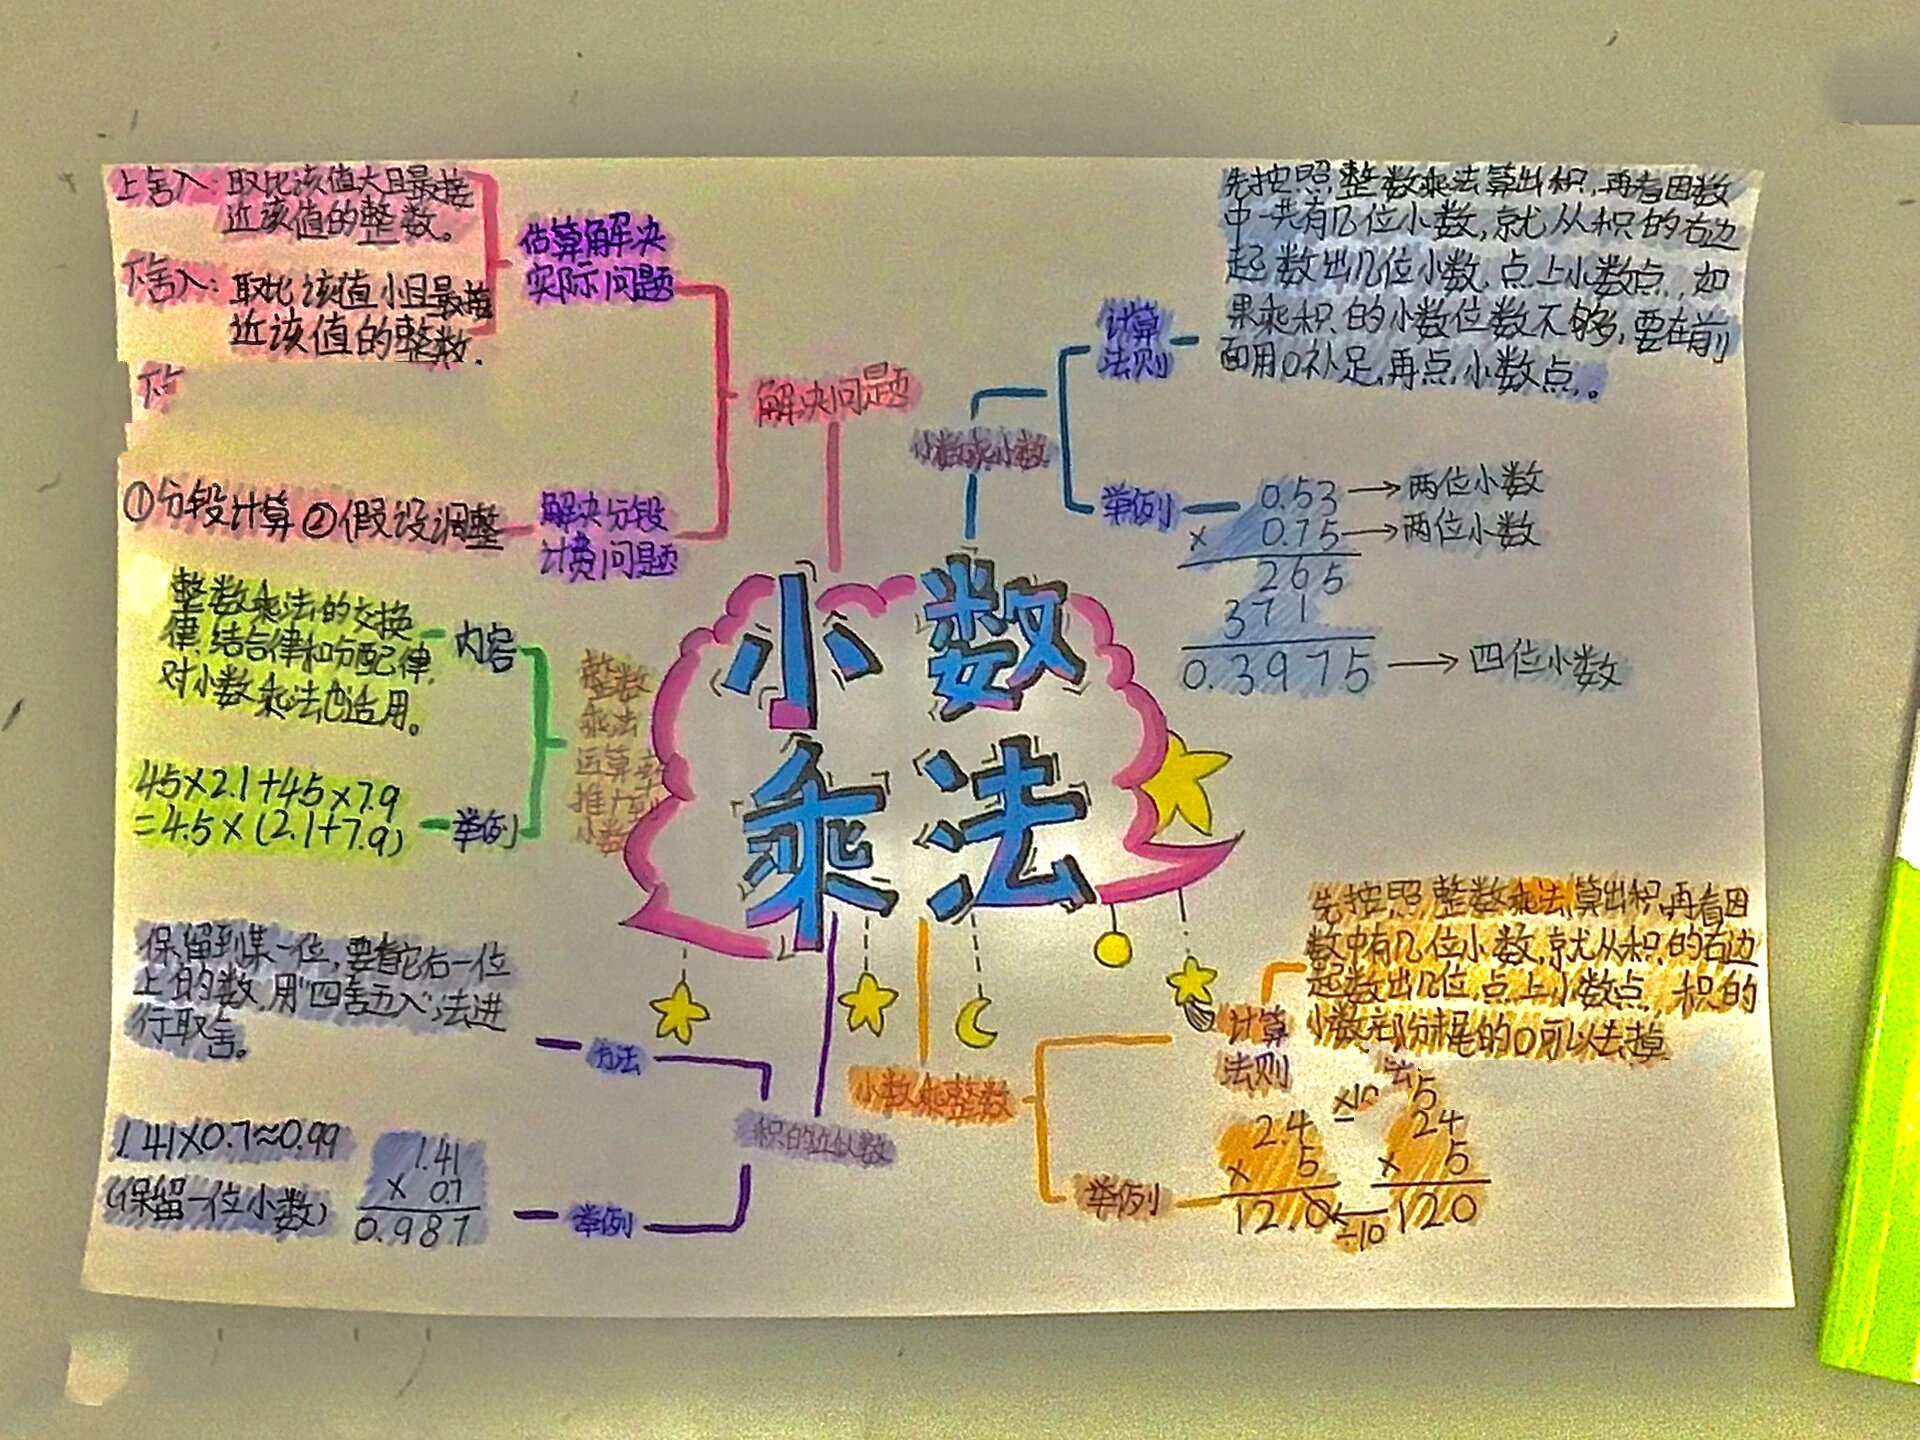 小数
乘法
上舍入：取比该值大且最接
近该值的整数。
下舍入：取比该值小且最接
近该值的整数.
估算解决
实际问题
解决问题
①分段计算②假设调整
解决分段
计费问题
小数乘小数
计算
法则
先按照整数乘法算出积,再看因数
中一共有几位小数,就从积的右边
起数出几位小数.点上小数点,如
果乘积的小数位数不够,要在前
面用0补足,再点小数点。
举例
0.53→两位小数
× 0.75→两位小数
265
371
0.3975→四位小数
整数乘法的交换
律.结合律和分配律.
对小数乘法也适用。
内容
整数
乘法
运算
小数
45×2.1+45×7.9
=4.5×(2.1+7.9)
举例
保留到某一位,要看它右一位
上的数,用"四舍五入"法进
行取舍。
方法
积的近似数
1.41×0.7≈0.99
(保留一位小数)
1.41
× 0.7
0.987
举例
小数乘整数
计算
法则
先按照整数乘法算出积,再看因
数中有几位小数,就从积的右边
起数出几位.点上小数点,积的
小数部分末尾的0可以去掉
举例
×10
5
2.4
× 5
12.0
24
× 5
120
÷10